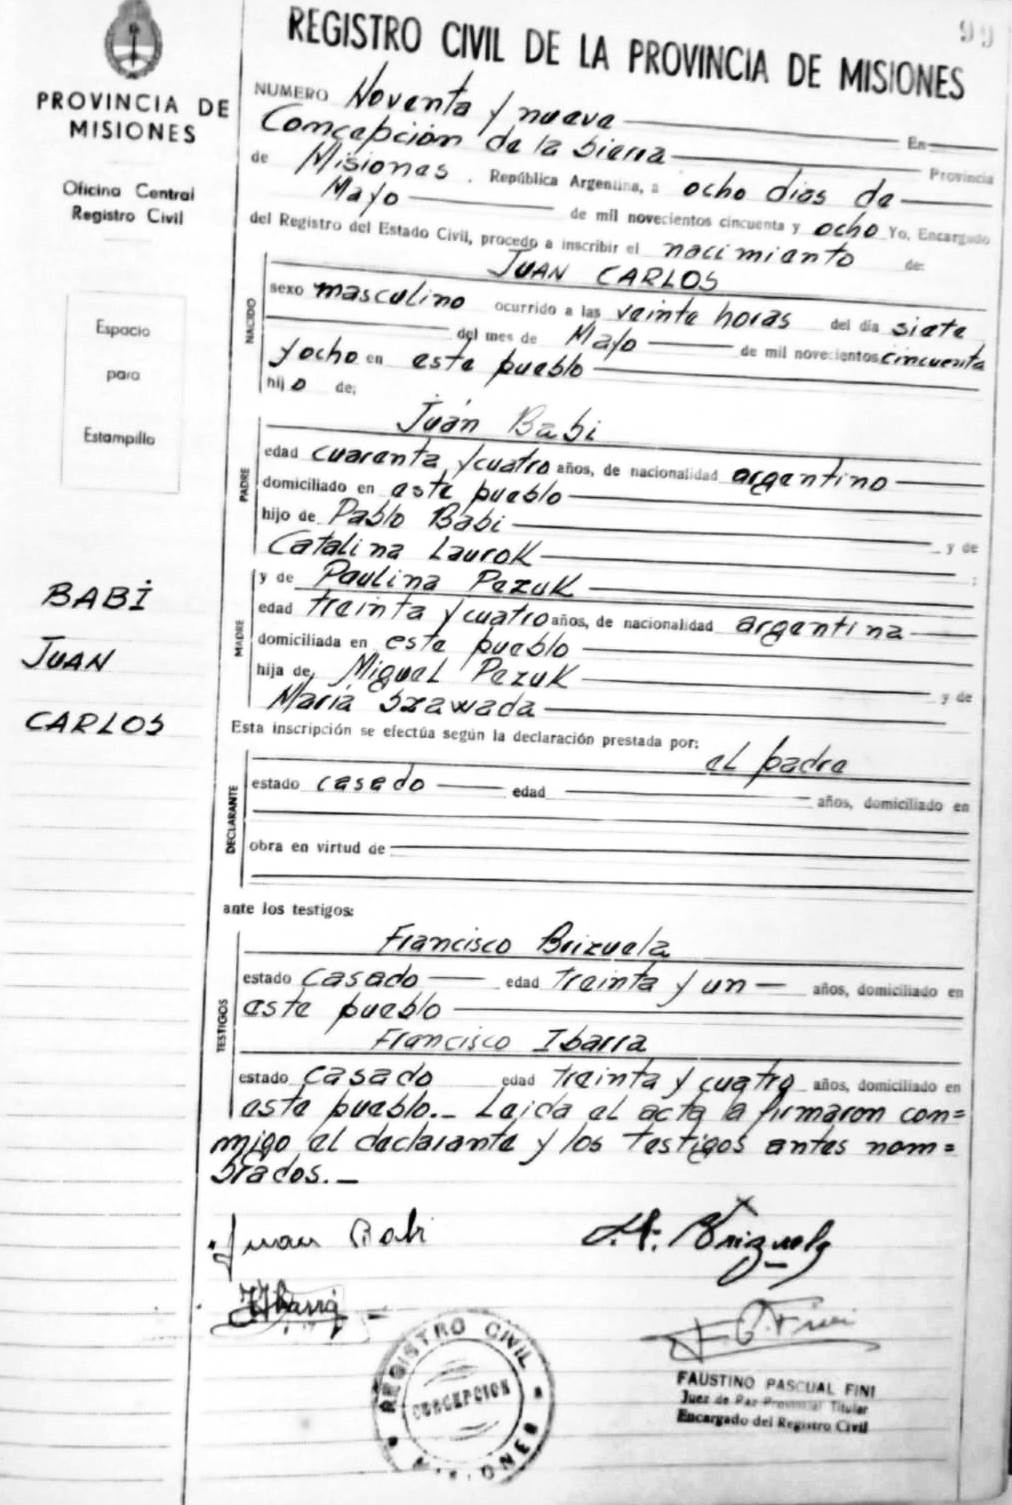 99
REGISTRO CIVIL DE LA PROVINCIA DE MISIONES
PROVINCIA DE
MISIONES
Oficina Central
Registro Civil
Espacio
para
Estampilla
BABI
JUAN
CARLOS
NUMERO Noventa y nueve En
Concepción de la Sierra Provincia
de Misiones. República Argentina, a ocho días de
Mayo de mil novecientos cincuenta y ocho Yo, Encargado
del Registro del Estado Civil, procedo a inscribir el nacimiento de:
NACIDO
JUAN CARLOS
sexo masculino ocurrido a las veinte horas del día siete
del mes de Mayo de mil novecientos cincuenta
y ocho en este pueblo
hijo de;
PADRE
Juan Babi
edad cuarenta y cuatro años, de nacionalidad argentino
domiciliado en este pueblo
hijo de Pablo Babi y de
Catalina Laurok ;
MADRE
y de Paulina Pezuk
edad treinta y cuatro años, de nacionalidad argentina
domiciliada en este pueblo
hija de, Miguel Pezuk y de
María Szawada
Esta inscripción se efectúa según la declaración prestada por:
DECLARANTE
el padre
estado casado edad años, domiciliado en
obra en virtud de
ante los testigos:
TESTIGOS
Francisco Brizuela
estado casado edad treinta y un años, domiciliado en
este pueblo
Francisco Ibarra
estado casado edad treinta y cuatro años, domiciliado en
este pueblo._ Leida el acta la firmaron con=
migo el declarante y los testigos antes nom=
brados._
Juan Babi
Brizuela
Ibarra
F. P. Fini
REGISTRO CIVIL
CONCEPCION
MISIONES
FAUSTINO PASCUAL FINI
Juez de Paz Provincial Titular
Encargado del Registro Civil